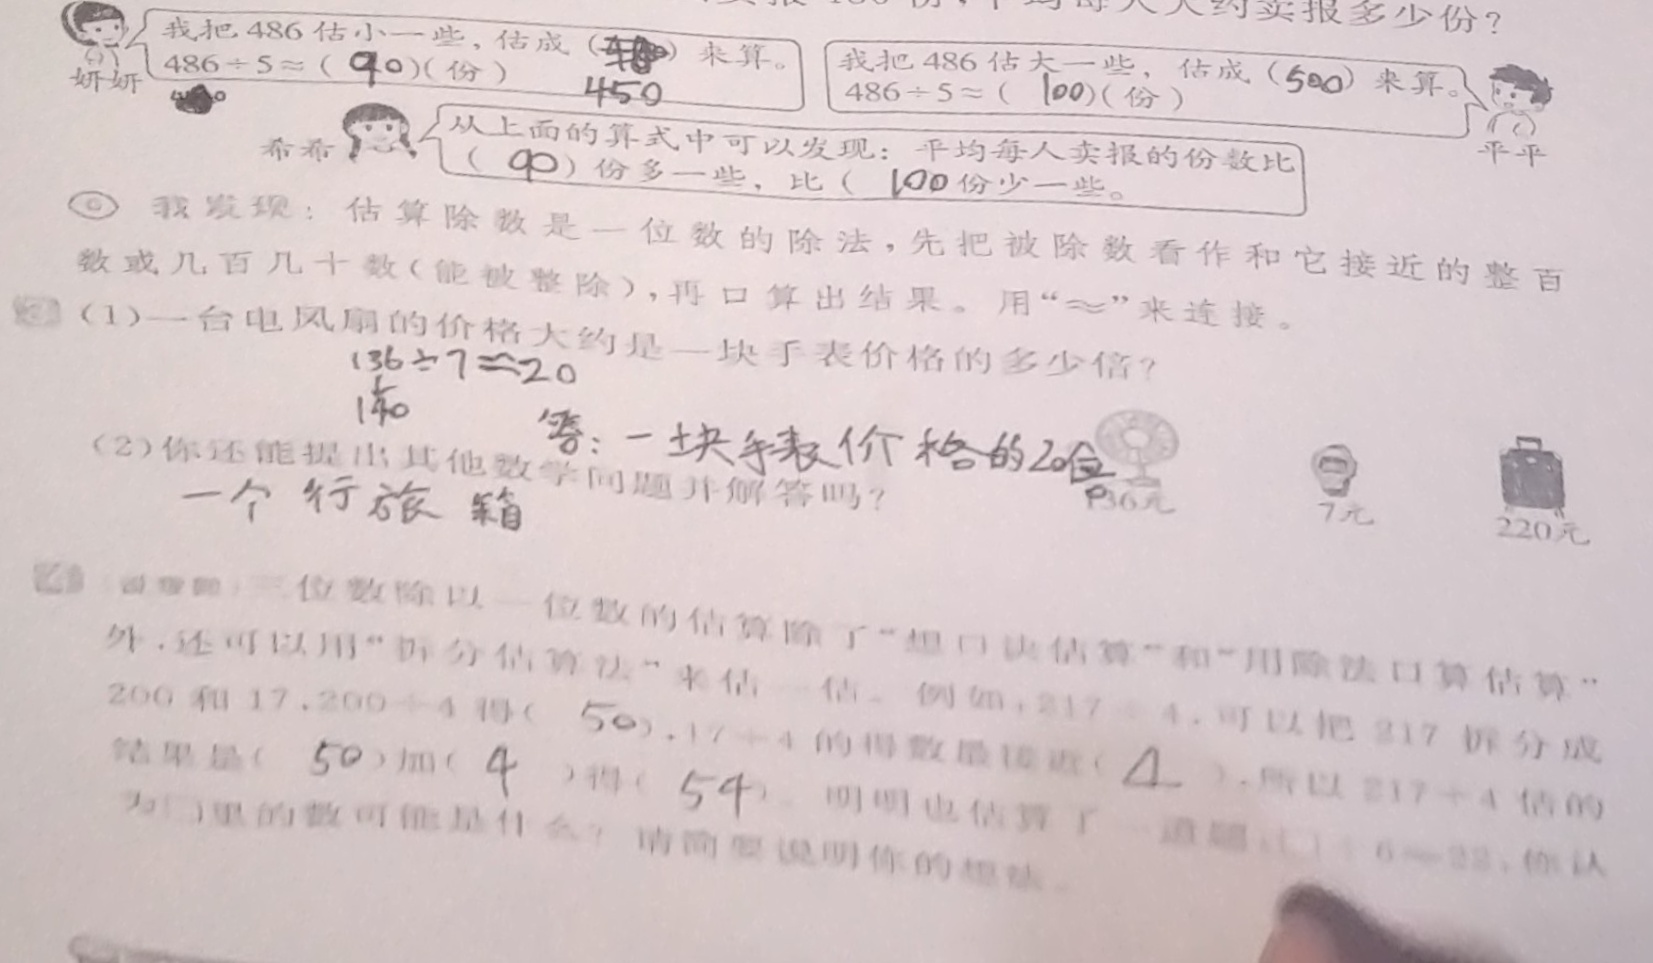 均每人大约卖报多少份？
我把486估小一些，估成（）来算。
486÷5≈（90）（份）
450
妍妍
我把486估大一些，估成（500）来算。
486÷5≈（100）（份）
平平
希希
从上面的算式中可以发现：平均每人卖报的份数比
（90）份多一些，比（100份少一些。
我发现：估算除数是一位数的除法，先把被除数看作和它接近的整百
数或几百几十数（能被整除），再口算出结果。用“≈”来连接。
（1）一台电风扇的价格大约是一块手表价格的多少倍？
136÷7≈20
140
答：一块手表价格的20倍
（2）你还能提出其他数学问题并解答吗？
一个行旅箱
136元
7元
220元
三位数除以一位数的估算除了“想口诀估算”和“用除法口算估算”
外，还可以用“拆分估算法”来估一估。例如，217÷4，可以把217拆分成
200和17，200÷4得（50），17÷4的得数最接近（4），所以217÷4估的
结果是（50）加（4）得（54）。明明也估算了一道题：÷6≈22，你认
为□里的数可能是什么？请简要说明你的想法。